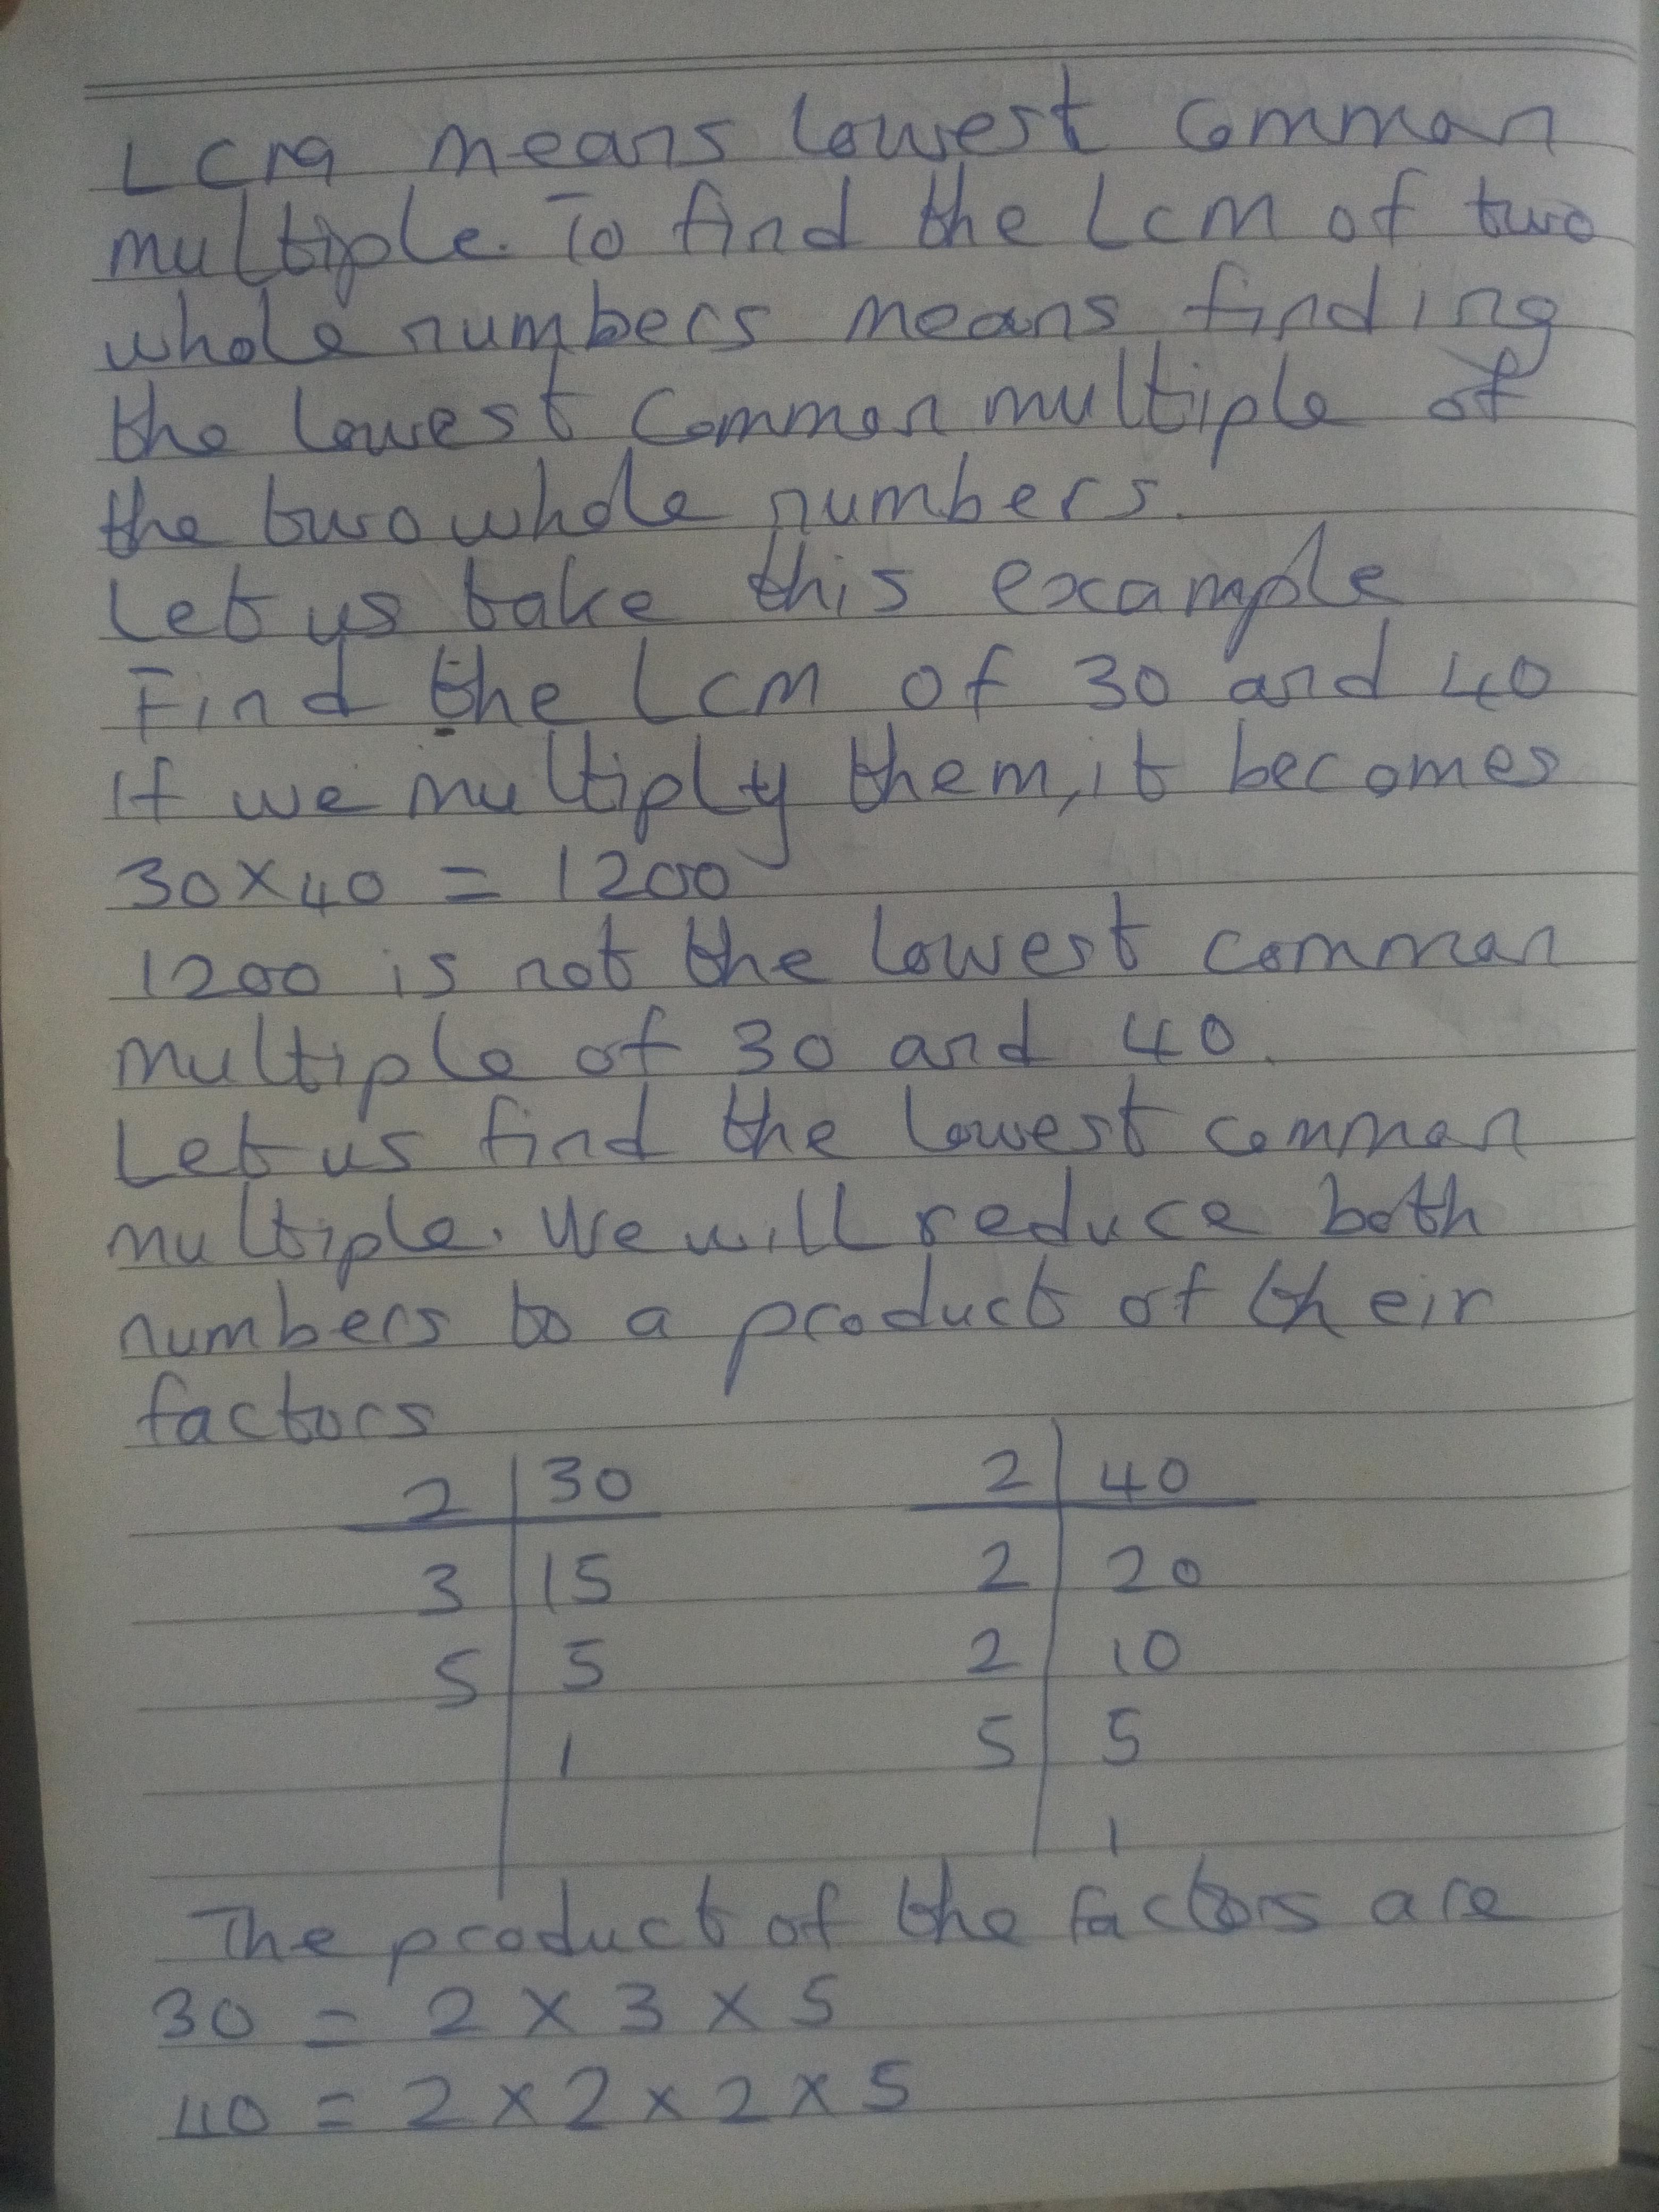 LCM means lowest common
multiple. To find the LCM of two
whole numbers means finding
the lowest common multiple of
the two whole numbers.
Let us take this example
Find the LCM of 30 and 40
If we multiply them, it becomes
30 × 40 = 1200
1200 is not the lowest common
multiple of 30 and 40.
Let us find the lowest common
multiple. We will reduce both
numbers to a product of their
factors
2 | 30 2 | 40
3 | 15 2 | 20
5 | 5 2 | 10
1 5 | 5
1
The product of the factors are
30 = 2 × 3 × 5
40 = 2 × 2 × 2 × 5